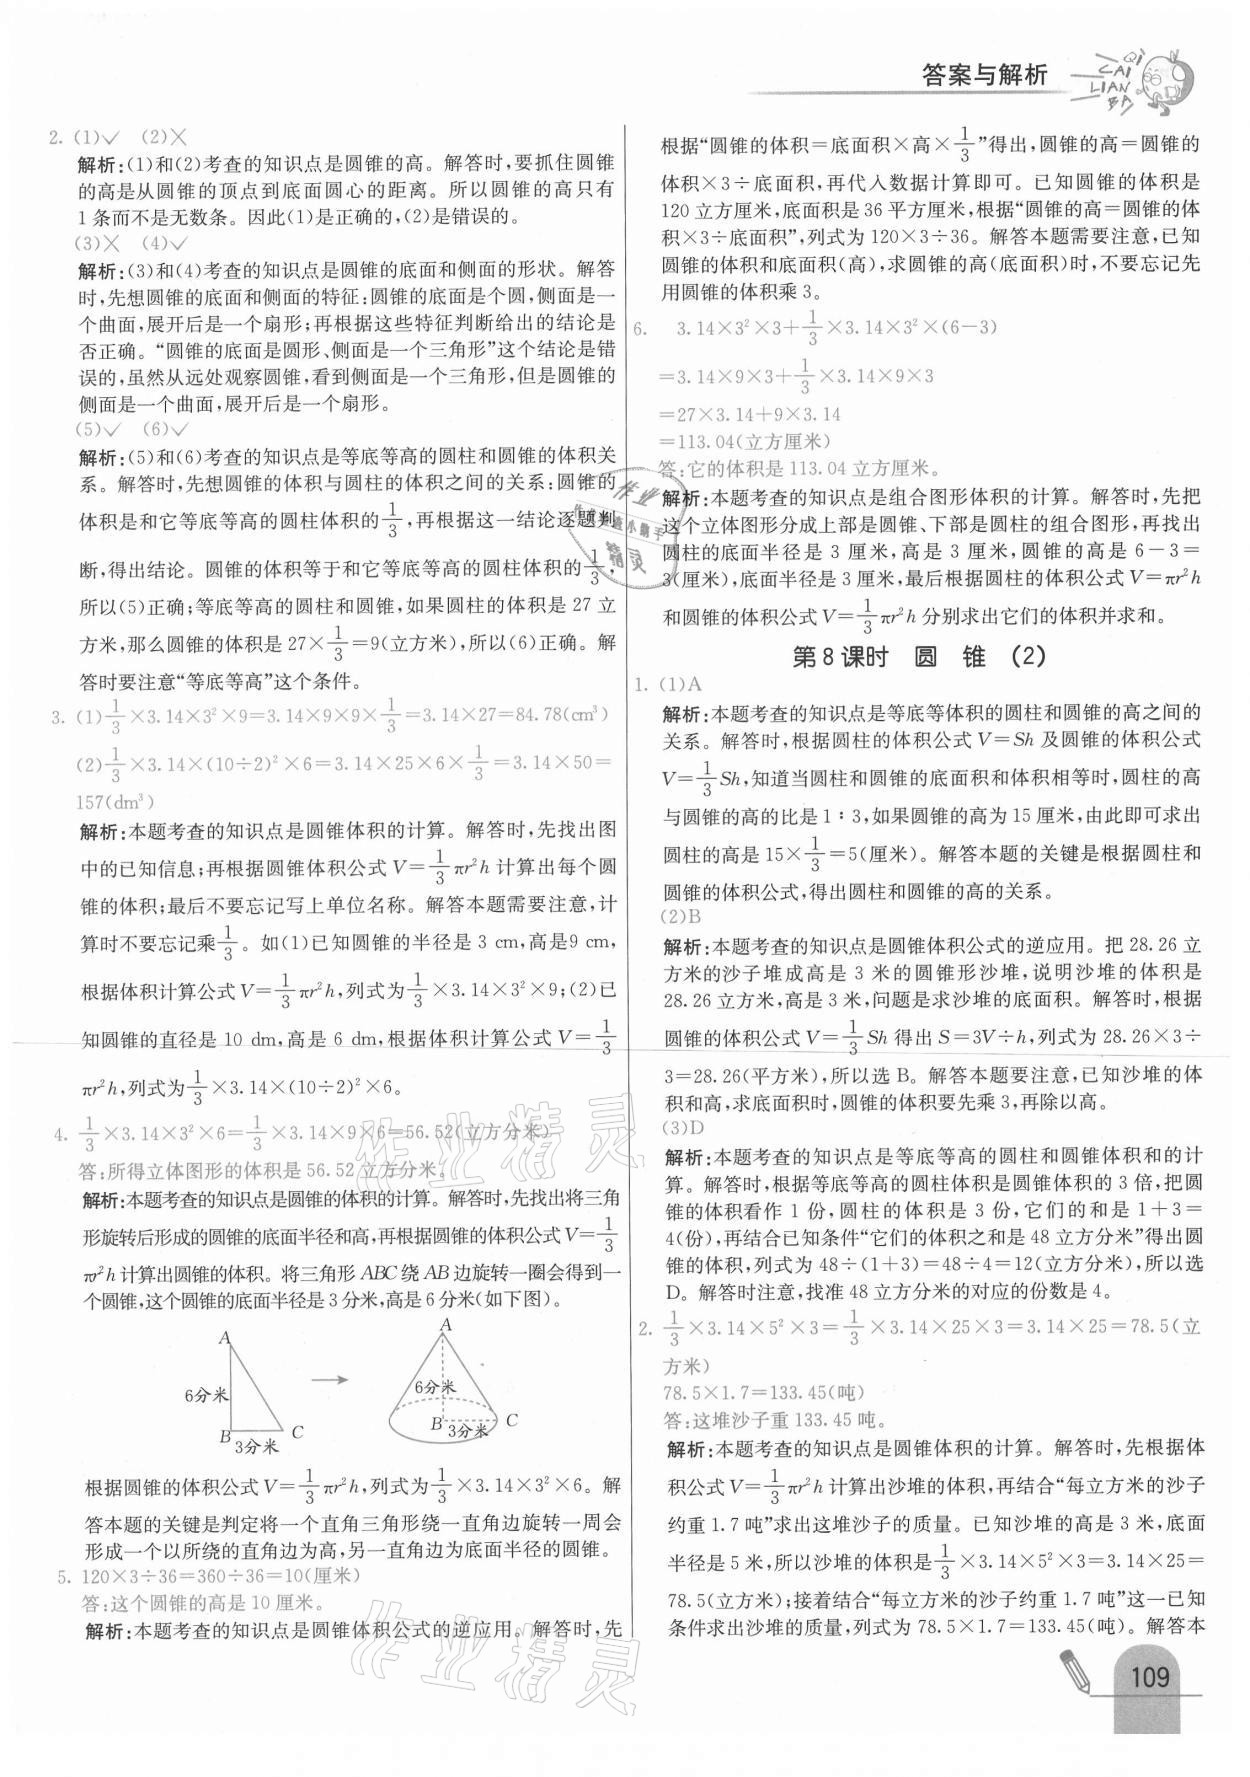 答案与解析
QI
CAI
LIAN
BA
2. (1)✓ (2)✗
解析:(1)和(2)考查的知识点是圆锥的高。解答时,要抓住圆锥
的高是从圆锥的顶点到底面圆心的距离。所以圆锥的高只有
1条而不是无数条。因此(1)是正确的,(2)是错误的。
(3)✗ (4)✓
解析:(3)和(4)考查的知识点是圆锥的底面和侧面的形状。解答
时,先想圆锥的底面和侧面的特征:圆锥的底面是个圆,侧面是一
个曲面,展开后是一个扇形;再根据这些特征判断给出的结论是
否正确。“圆锥的底面是圆形、侧面是一个三角形”这个结论是错
误的,虽然从远处观察圆锥,看到侧面是一个三角形,但是圆锥的
侧面是一个曲面,展开后是一个扇形。
(5)✓ (6)✓
解析:(5)和(6)考查的知识点是等底等高的圆柱和圆锥的体积关
系。解答时,先想圆锥的体积与圆柱的体积之间的关系:圆锥的
体积是和它等底等高的圆柱体积的1/3,再根据这一结论逐题判
断,得出结论。圆锥的体积等于和它等底等高的圆柱体积的1/3,
所以(5)正确;等底等高的圆柱和圆锥,如果圆柱的体积是27立
方米,那么圆锥的体积是27×1/3=9(立方米),所以(6)正确。解
答时要注意“等底等高”这个条件。
3. (1)1/3×3.14×3²×9=3.14×9×9×1/3=3.14×27=84.78(cm³)
(2)1/3×3.14×(10÷2)²×6=3.14×25×6×1/3=3.14×50=
157(dm³)
解析:本题考查的知识点是圆锥体积的计算。解答时,先找出图
中的已知信息;再根据圆锥体积公式V=1/3πr²h计算出每个圆
锥的体积;最后不要忘记写上单位名称。解答本题需要注意,计
算时不要忘记乘1/3。如(1)已知圆锥的半径是3 cm,高是9 cm,
根据体积计算公式V=1/3πr²h,列式为1/3×3.14×3²×9;(2)已
知圆锥的直径是10 dm,高是6 dm,根据体积计算公式V=1/3
πr²h,列式为1/3×3.14×(10÷2)²×6。
4. 1/3×3.14×3²×6=1/3×3.14×9×6=56.52(立方分米)
答:所得立体图形的体积是56.52立方分米。
解析:本题考查的知识点是圆锥的体积的计算。解答时,先找出将三角
形旋转后形成的圆锥的底面半径和高,再根据圆锥的体积公式V=1/3
πr²h计算出圆锥的体积。将三角形ABC绕AB边旋转一圈会得到一
个圆锥,这个圆锥的底面半径是3分米,高是6分米(如下图)。
A
6分米
B
3分米
C
A
6分米
B
3分米
C
根据圆锥的体积公式V=1/3πr²h,列式为1/3×3.14×3²×6。解
答本题的关键是判定将一个直角三角形绕一直角边旋转一周会
形成一个以所绕的直角边为高,另一直角边为底面半径的圆锥。
5. 120×3÷36=360÷36=10(厘米)
答:这个圆锥的高是10厘米。
解析:本题考查的知识点是圆锥体积公式的逆应用。解答时,先
根据“圆锥的体积=底面积×高×1/3”得出,圆锥的高=圆锥的
体积×3÷底面积,再代入数据计算即可。已知圆锥的体积是
120立方厘米,底面积是36平方厘米,根据“圆锥的高=圆锥的体
积×3÷底面积”,列式为120×3÷36。解答本题需要注意,已知
圆锥的体积和底面积(高),求圆锥的高(底面积)时,不要忘记先
用圆锥的体积乘3。
6. 3.14×3²×3+1/3×3.14×3²×(6-3)
=3.14×9×3+1/3×3.14×9×3
=27×3.14+9×3.14
=113.04(立方厘米)
答:它的体积是113.04立方厘米。
解析:本题考查的知识点是组合图形体积的计算。解答时,先把
这个立体图形分成上部是圆锥、下部是圆柱的组合图形,再找出
圆柱的底面半径是3厘米,高是3厘米,圆锥的高是6-3=
3(厘米),底面半径是3厘米,最后根据圆柱的体积公式V=πr²h
和圆锥的体积公式V=1/3πr²h分别求出它们的体积并求和。
第8课时 圆 锥 (2)
1. (1)A
解析:本题考查的知识点是等底等体积的圆柱和圆锥的高之间的
关系。解答时,根据圆柱的体积公式V=Sh及圆锥的体积公式
V=1/3Sh,知道当圆柱和圆锥的底面积和体积相等时,圆柱的高
与圆锥的高的比是1∶3,如果圆锥的高为15厘米,由此即可求出
圆柱的高是15×1/3=5(厘米)。解答本题的关键是根据圆柱和
圆锥的体积公式,得出圆柱和圆锥的高的关系。
(2)B
解析:本题考查的知识点是圆锥体积公式的逆应用。把28.26立
方米的沙子堆成高是3米的圆锥形沙堆,说明沙堆的体积是
28.26立方米,高是3米,问题是求沙堆的底面积。解答时,根据
圆锥的体积公式V=1/3Sh得出S=3V÷h,列式为28.26×3÷
3=28.26(平方米),所以选B。解答本题要注意,已知沙堆的体
积和高,求底面积时,圆锥的体积要先乘3,再除以高。
(3)D
解析:本题考查的知识点是等底等高的圆柱和圆锥体积和的计
算。解答时,根据等底等高的圆柱体积是圆锥体积的3倍,把圆
锥的体积看作1份,圆柱的体积是3份,它们的和是1+3=
4(份),再结合已知条件“它们的体积之和是48立方分米”得出圆
锥的体积,列式为48÷(1+3)=48÷4=12(立方分米),所以选
D。解答时注意,找准48立方分米的对应的份数是4。
2. 1/3×3.14×5²×3=1/3×3.14×25×3=3.14×25=78.5(立
方米)
78.5×1.7=133.45(吨)
答:这堆沙子重133.45吨。
解析:本题考查的知识点是圆锥体积的计算。解答时,先根据体
积公式V=1/3πr²h计算出沙堆的体积,再结合“每立方米的沙子
约重1.7吨”求出这堆沙子的质量。已知沙堆的高是3米,底面
半径是5米,所以沙堆的体积是1/3×3.14×5²×3=3.14×25=
78.5(立方米);接着结合“每立方米的沙子约重1.7吨”这一已知
条件求出沙堆的质量,列式为78.5×1.7=133.45(吨)。解答本
109
作业精灵
作业精灵
作业
精灵